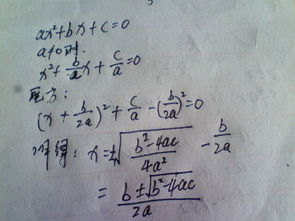 ax²+bx+c=0
a≠0时.
x²+b/a x+c/a=0
配方:
(x+b/2a)²+c/a-(b/2a)²=0
解得: x=±√((b²-4ac)/4a²) - b/2a
=(b±√(b²-4ac))/2a